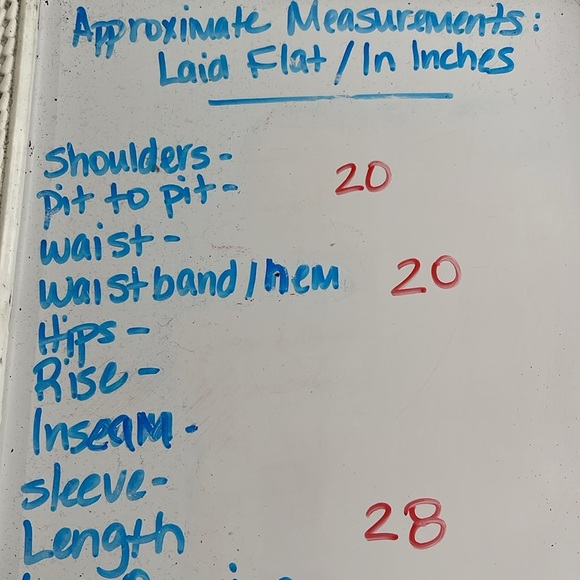 Approximate Measurements:
Laid Flat / In Inches
Shoulders-
pit to pit- 20
waist-
waistband / hem 20
Hips-
Rise-
Inseam-
Sleeve-
Length 28